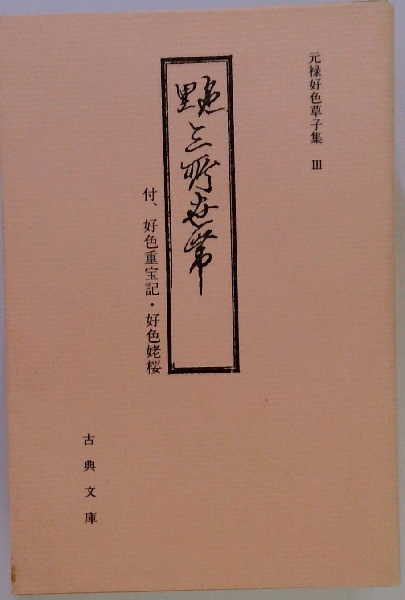 元禄好色草子集 Ⅲ
艶三所世帯
付、好色重宝記・好色姥桜
古典文庫